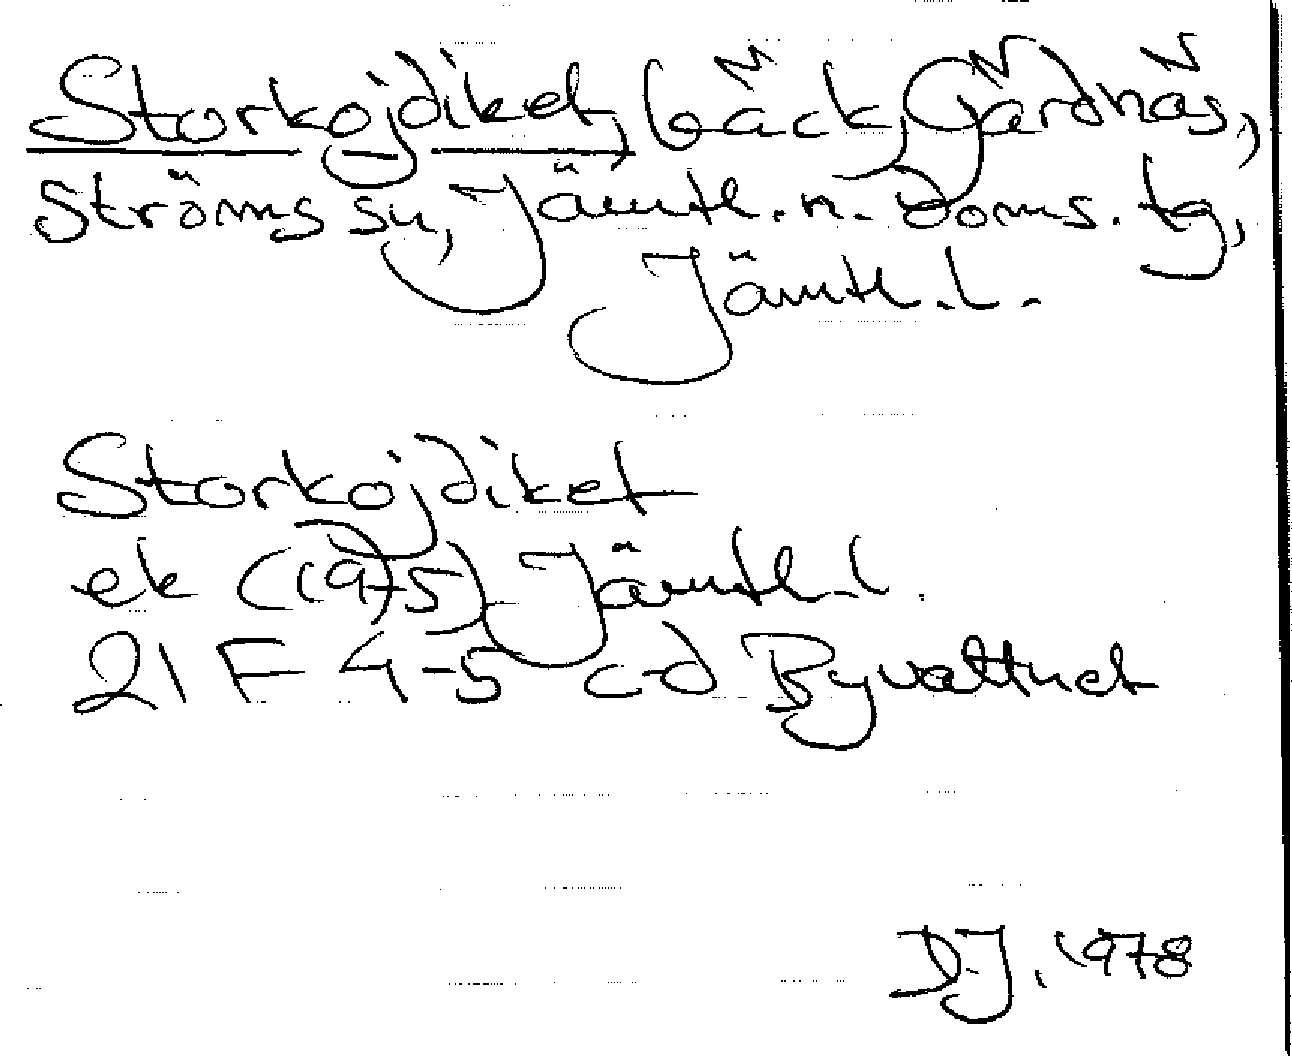 Storkojdiket, bäck, Gärdnäs,
Ströms sn, Jämtl. n. doms. tg,
Jämtl. l.
Storkojdiket
ek (1975) Jämtl. l.
21 F 4-5 c-d Byvattnet
DJ. 1978